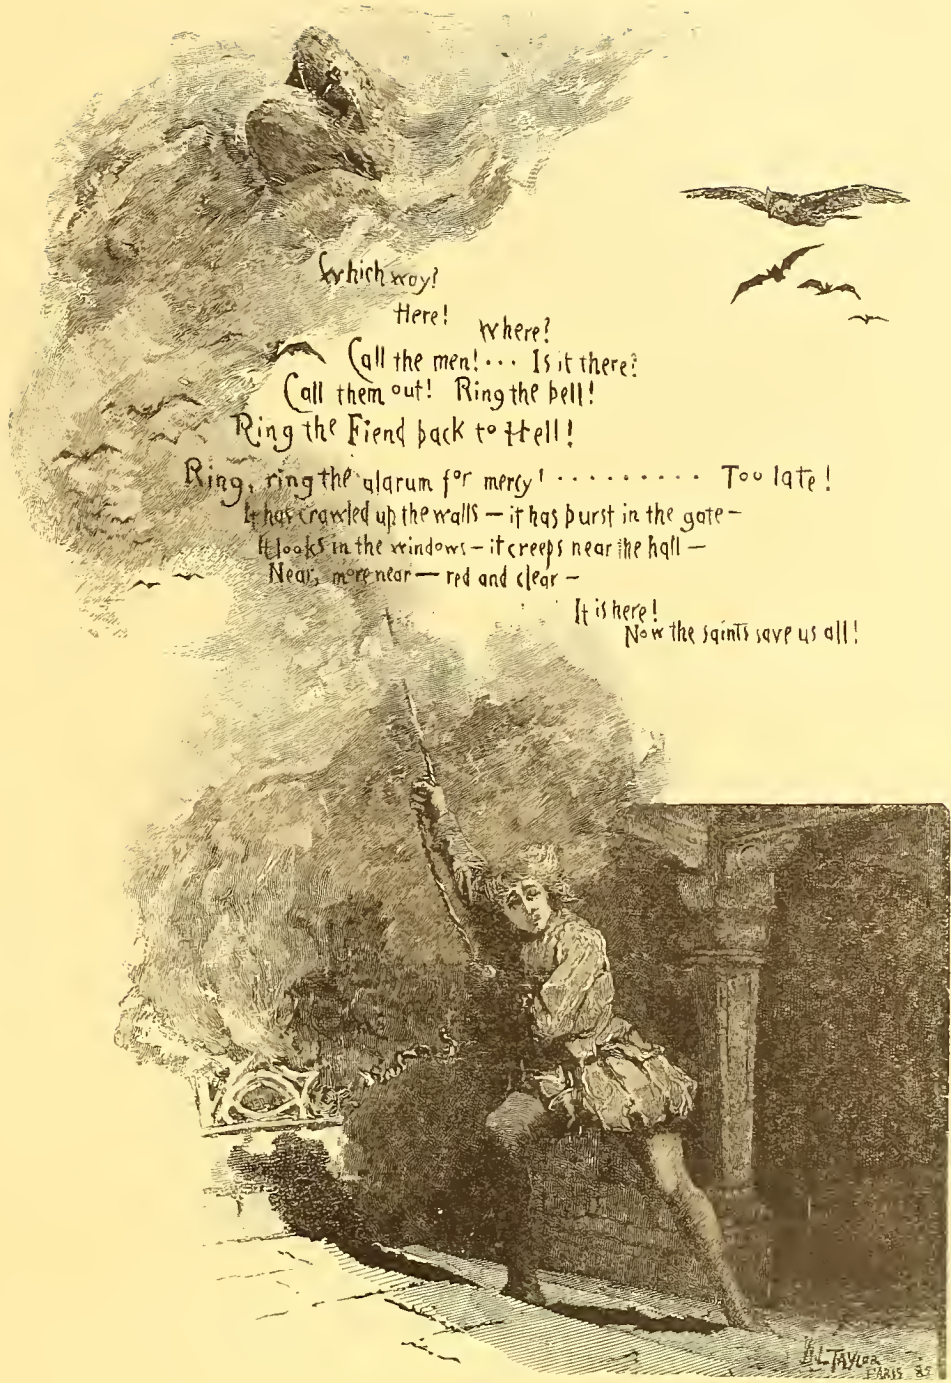 Which way?
Here!
Where?
Call the men! ... Is it there?
Call them out! Ring the bell!
Ring the Fiend back to Hell!
Ring, ring the alarum for mercy! .......... Too late!
It has crawled up the walls — it has burst in the gate —
It looks in the windows — it creeps near the hall —
Near, more near — red and clear —
It is here!
Now the saints save us all!
W.L. TAYLOR
PARIS 85